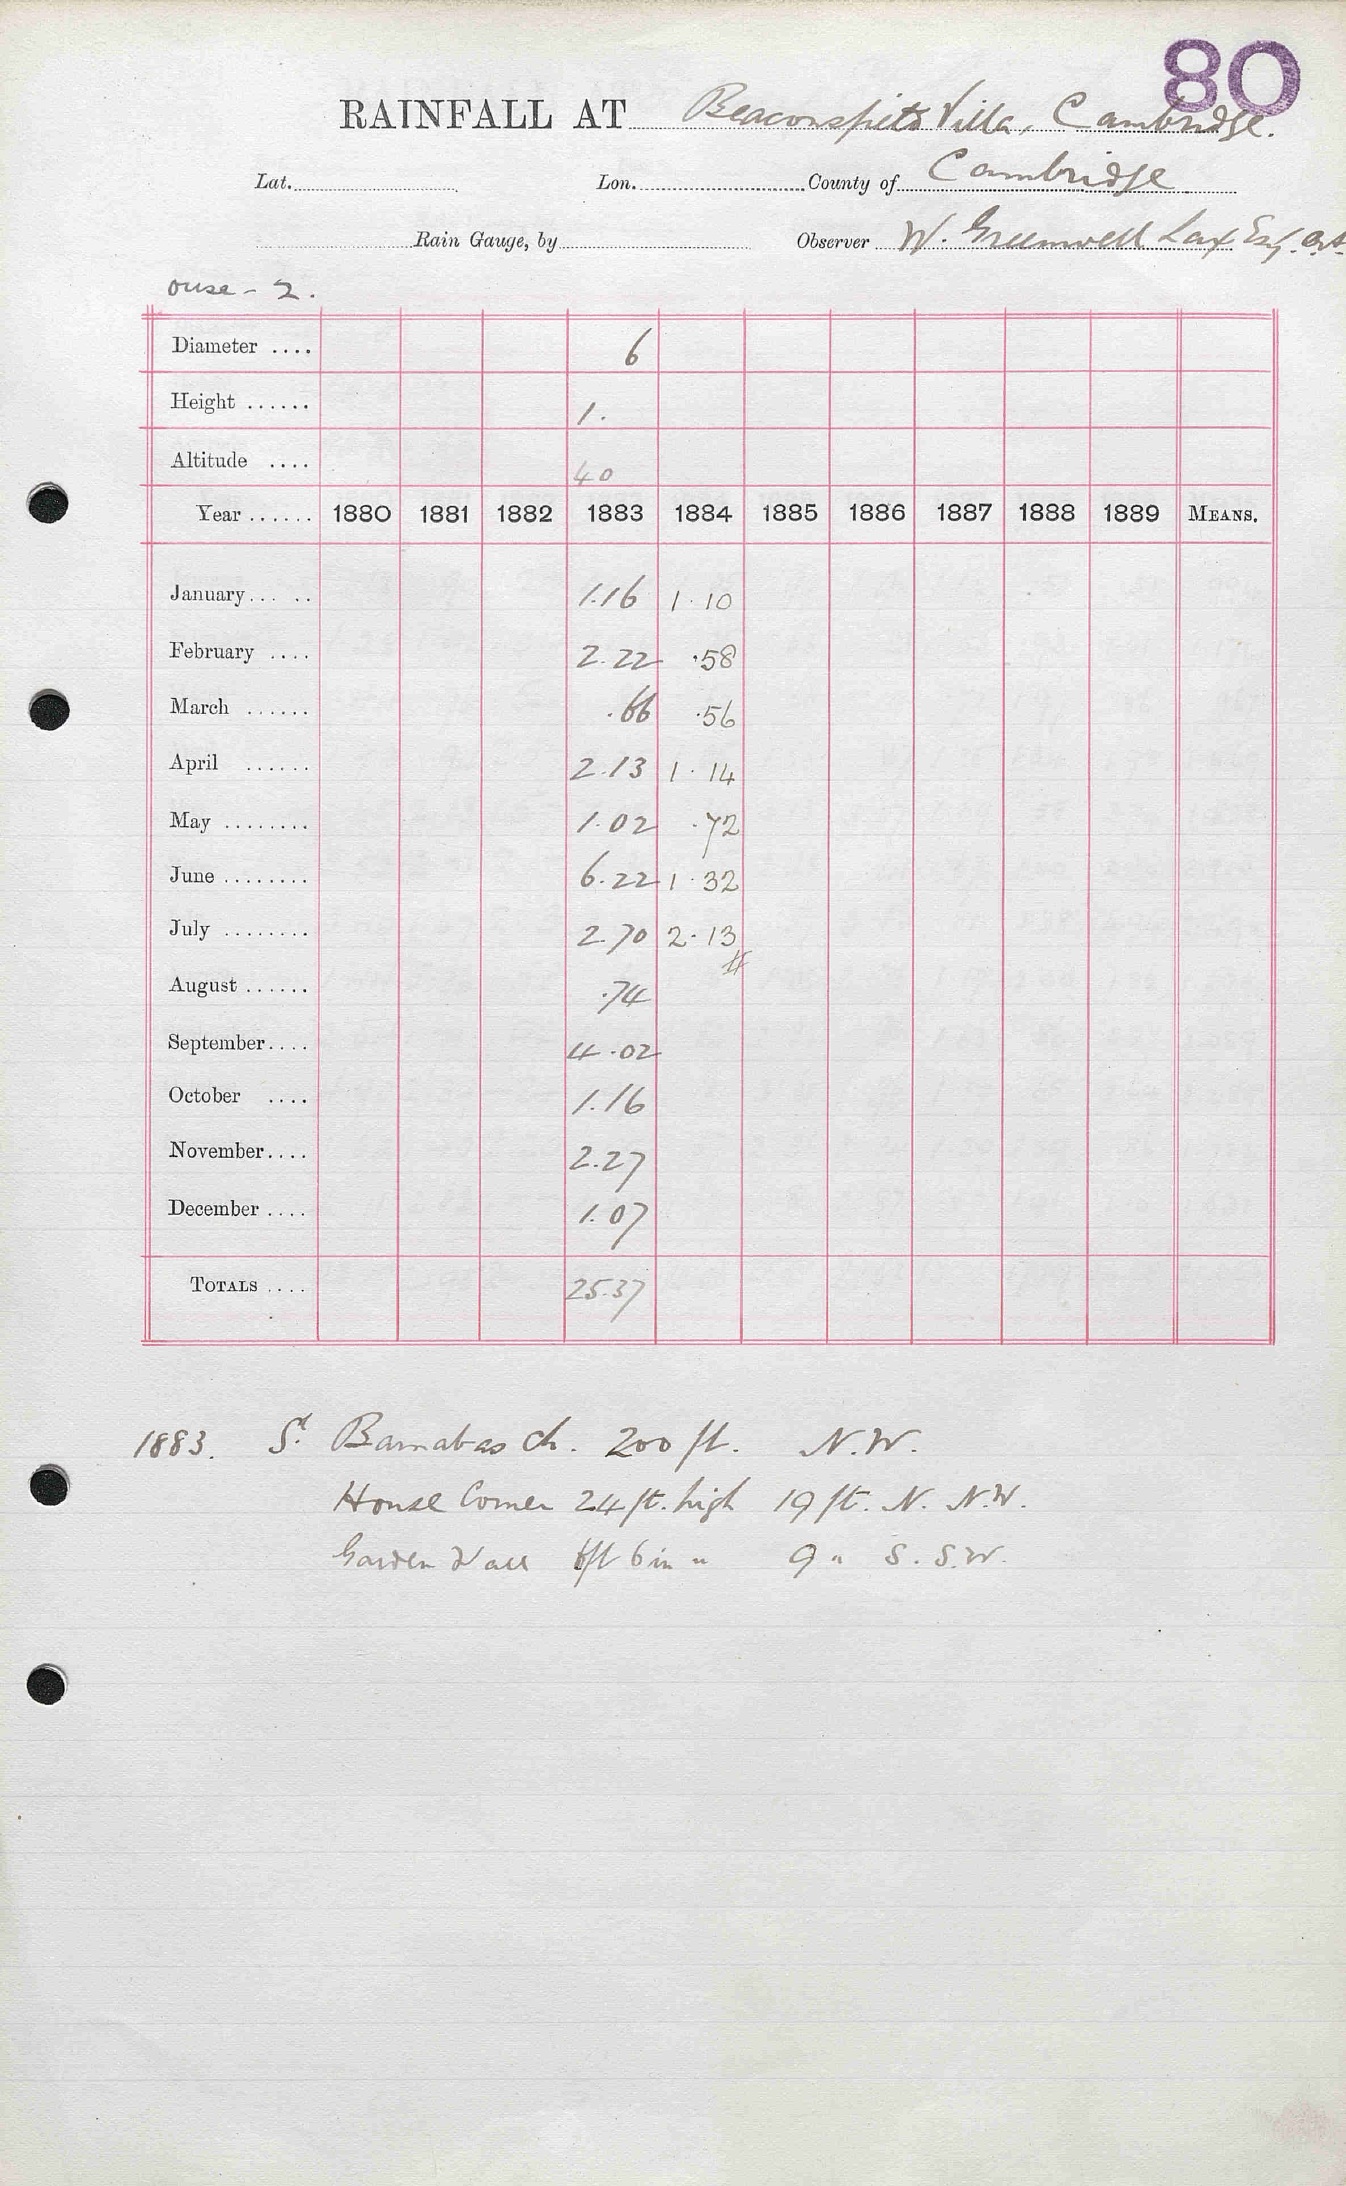 80
RAINFALL AT Beaconsfield Villa, Cambridge.
Lat. Lon. County of Cambridge
Rain Gauge, by Observer W. Greenwell Lax Esq.
Ouse - 2.
Diameter .... 6
Height ...... 1.
Altitude .... 40
Year ...... 1880 1881 1882 1883 1884 1885 1886 1887 1888 1889 MEANS.
January... .. 1.16 1.10
February .... 2.22 .58
March ...... .66 .56
April ...... 2.13 1.14
May ........ 1.02 .72
June ........ 6.22 1.32
July ........ 2.70 2.13
August ...... .74
September.... 4.02
October .... 1.16
November.... 2.27
December .... 1.07
TOTALS .... 25.37
1883. St. Barnabas Ch. 200 ft. N.W.
House Corner 24 ft. high 19 ft. N. N.W.
Garden Wall 6ft 6 in " 9 " S. S.W.